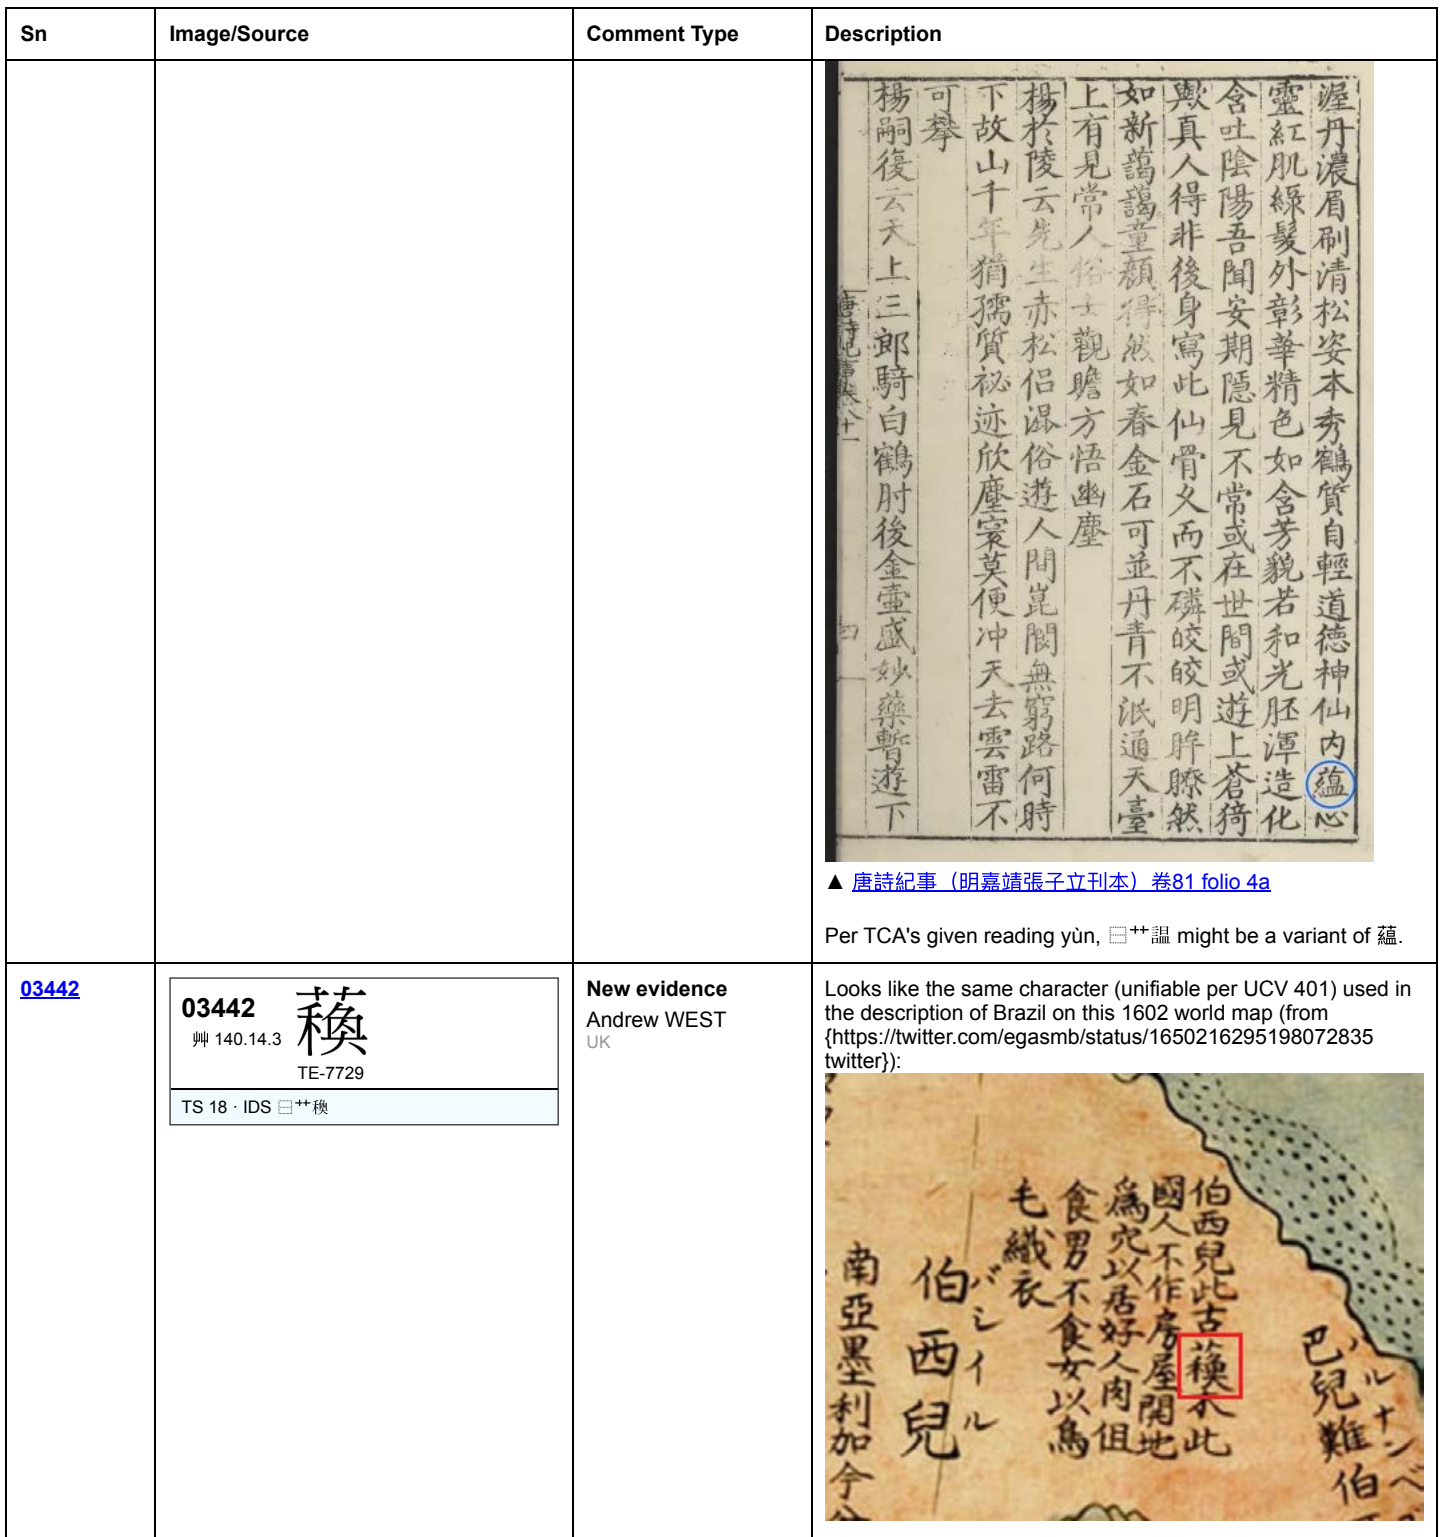 Sn
Image/Source
Comment Type
Description
渥丹濃眉刷清松姿本秀鶴質自輕道德神仙内蘊心
靈紅肌綠髮外彰華精色如含芳貌若和光胚渾造化
含吐陰陽吾聞安期隱見不常或在世間或遊上蒼猗
歟真人得非後身寫此仙骨久而不磷皎皎明眸瞭然
如新藹藹童顏得然如春金石可並丹青不泯通天臺
上有見常人俗士觀瞻方悟幽塵
楊於陵云先生赤松侣混俗遊人間崑閬無窮路何時
下故山千年猶孺質祕迹欣塵寰莫便冲天去雲雷不
可攀
楊嗣復云天上三郎騎白鶴肘後金壷盛妙藥暫遊下
▲ 唐詩紀事（明嘉靖張子立刊本）卷81 folio 4a
Per TCA's given reading yùn, ⿱艹𥁕 might be a variant of 蘊.
03442
03442
艸 140.14.3
TE-7729
TS 18 · IDS ⿱艹
New evidence
Andrew WEST
UK
Looks like the same character (unifiable per UCV 401) used in
the description of Brazil on this 1602 world map (from
{https://twitter.com/egasmb/status/1650216295198072835
twitter}):
伯西兒此古木此
國人不作房屋開地
爲穴以居好人肉但
食男不食女以鳥
毛織衣
バシイル
伯西兒
南亞墨利加今分
巴兒難伯
バルナンベ